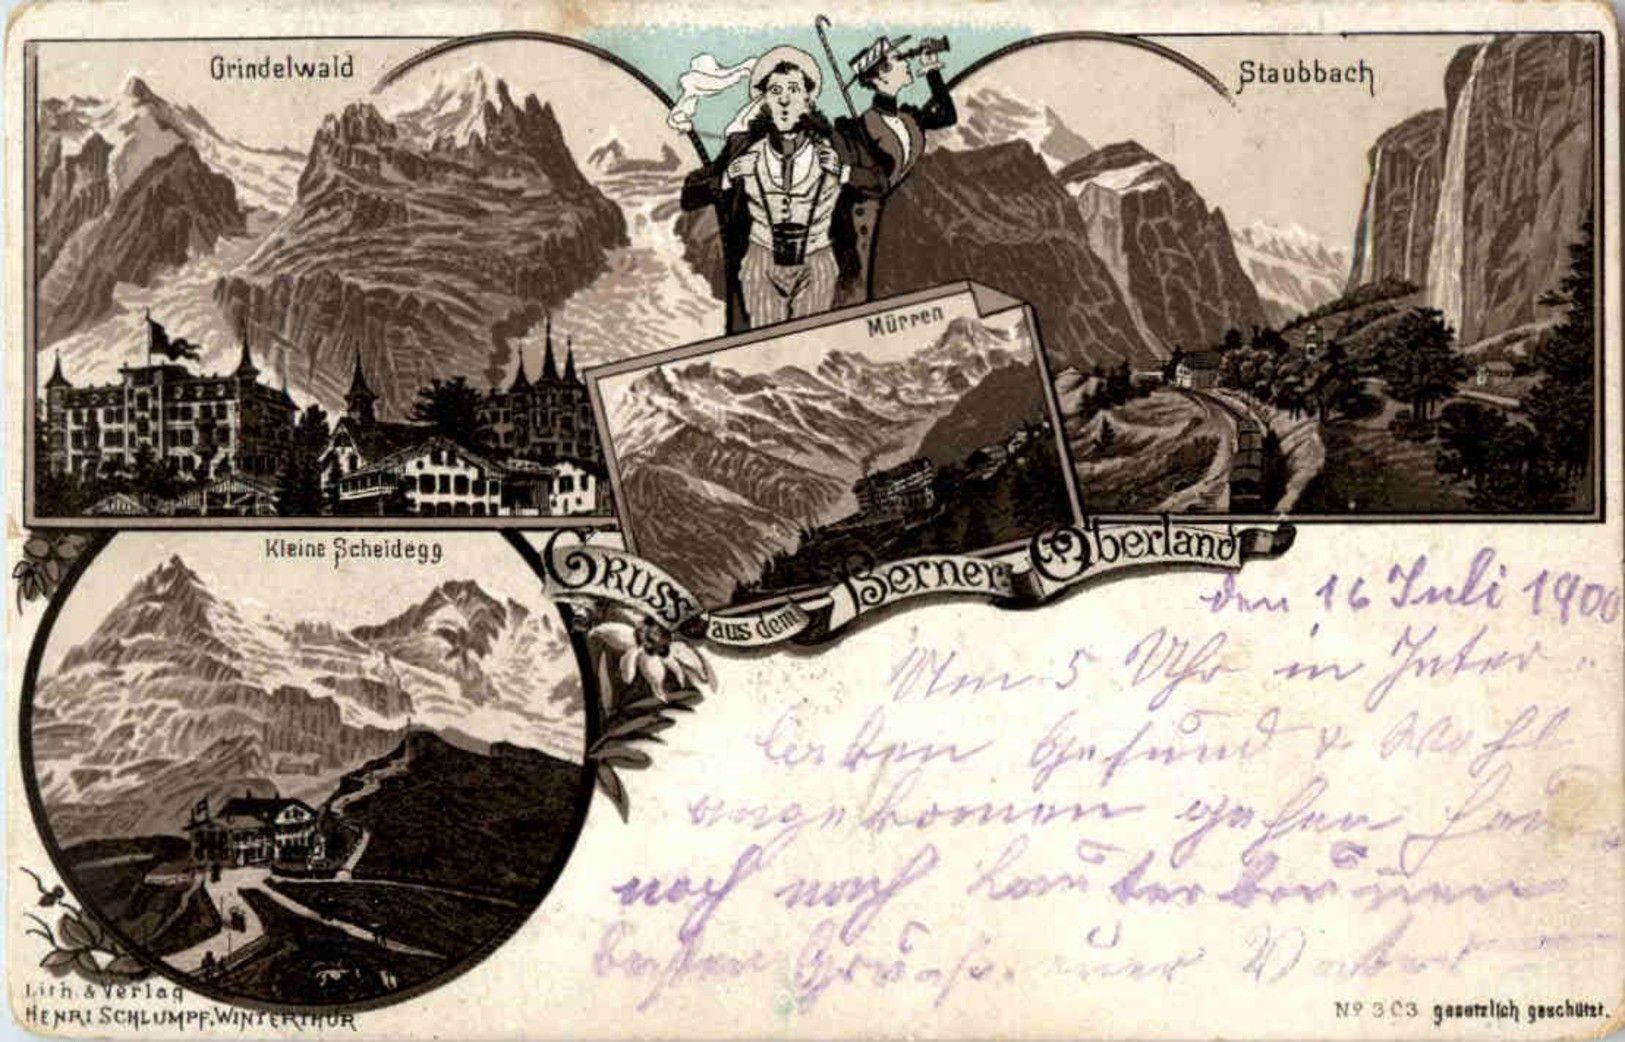 Grindelwald
Staubbach
Mürren
Kleine Scheidegg
Gruss aus dem Berner Oberland
den 16 Juli 1900
Um 5 Uhr in Inter
laken Gesund & Wohl
angekomen gehen heu
noch nach Lauterbrunen
besten Gruss. euer Vater
Lith. & Verlag
Henri Schlumpf, Winterthur
No 303 gesetzlich geschützt.